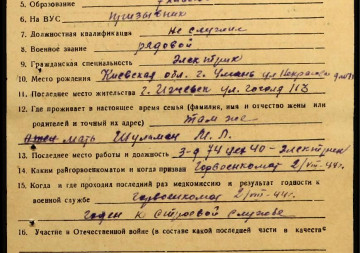 5. Образование
6. На ВУС призывник
7. Должностная квалификация не служил
8. Военное звание рядовой
9. Гражданская специальность электрик
10. Место рождения Киевская обл. г. Умань ул
11. Последнее место жительства г. Ижевск ул. Гоголя
12. Где проживает в настоящее время семья (фамилия, имя и отчество жены или
родителей и точный их адрес) там же
мать Шульман М. Л.
13. Последнее место работы и должность з-д 74 цех 40 - электрик
14. Каким райгорвоенкоматом и когда призван Горвоенкомат 2/VIII-44г.
15. Когда и где проходил последний раз медкомиссию и результат годности к
военной службе горвоенкомат 2/VIII-44г.
годен к строевой службе
16. Участие в Отечественной войне (в составе какой последней части в качеств